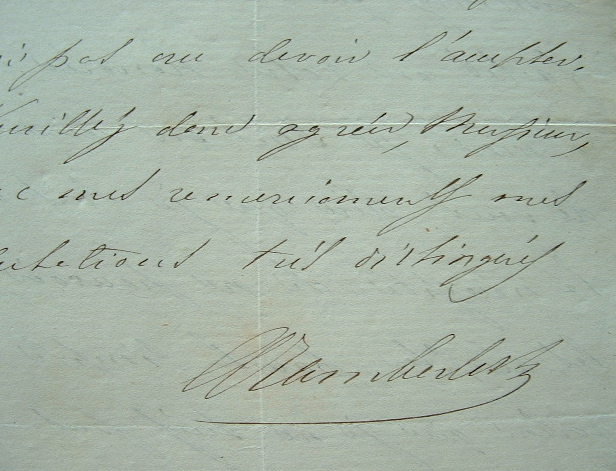 i pas cru devoir l'accepter.
Veuillez donc agréer, Monsieur,
c mes remerciements mes
lutations très distinguées
Tamberlick